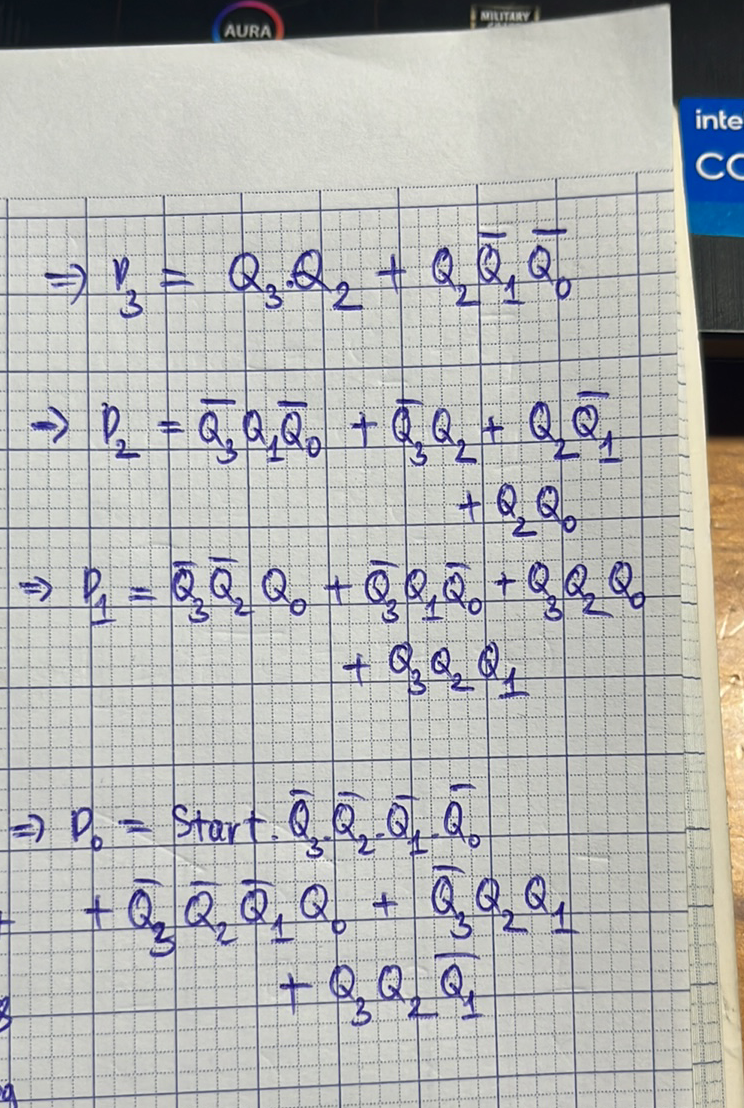 AURA
MILITARY
inte
CO
⇒ D₃ = Q₃.Q₂ + Q₂Q̅₁Q̅₀
⇒ D₂ = Q̅₃Q₁Q̅₀ + Q̅₃Q₂ + Q₂Q̅₁
+ Q₂Q₀
⇒ D₁ = Q̅₃Q̅₂Q₀ + Q̅₃Q₁Q̅₀ + Q₃Q₂Q₀
+ Q₃Q₂Q₁
⇒ D₀ = Start.Q̅₃.Q̅₂.Q̅₁.Q̅₀
+ Q̅₃Q̅₂Q̅₁Q₀ + Q̅₃Q₂Q₁
+ Q₃Q₂Q̅₁